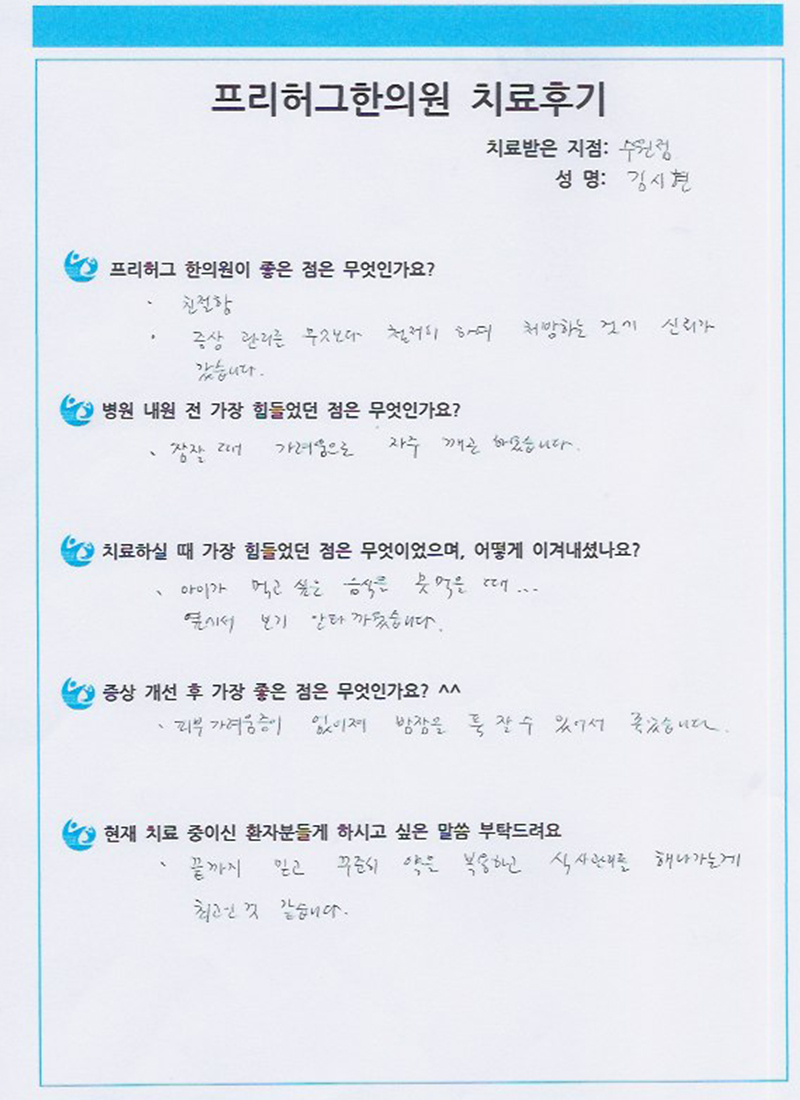 프리허그한의원 치료후기
치료받은 지점: 수원점
성 명: 김시현
프리허그 한의원이 좋은 점은 무엇인가요?
· 친절함
· 증상 관리를 무엇보다 철저히 하며 처방하는 것이 신뢰가
갔습니다.
병원 내원 전 가장 힘들었던 점은 무엇인가요?
· 잠잘 때 가려움으로 자주 깨곤 하였습니다.
치료하실 때 가장 힘들었던 점은 무엇이었으며, 어떻게 이겨내셨나요?
· 아이가 먹고 싶은 음식을 못 먹을 때...
옆에서 보기 안타까웠습니다.
증상 개선 후 가장 좋은 점은 무엇인가요? ^^
· 피부 가려움증이 없어져 밤잠을 푹 잘 수 있어서 좋았습니다.
현재 치료 중이신 환자분들게 하시고 싶은 말씀 부탁드려요
· 끝까지 믿고 꾸준히 약을 복용하고 식사관리를 해나가는게
최고인 것 같습니다.